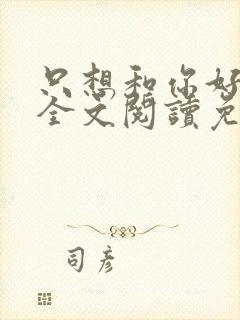 只想和你好
全文閱讀免
司彦